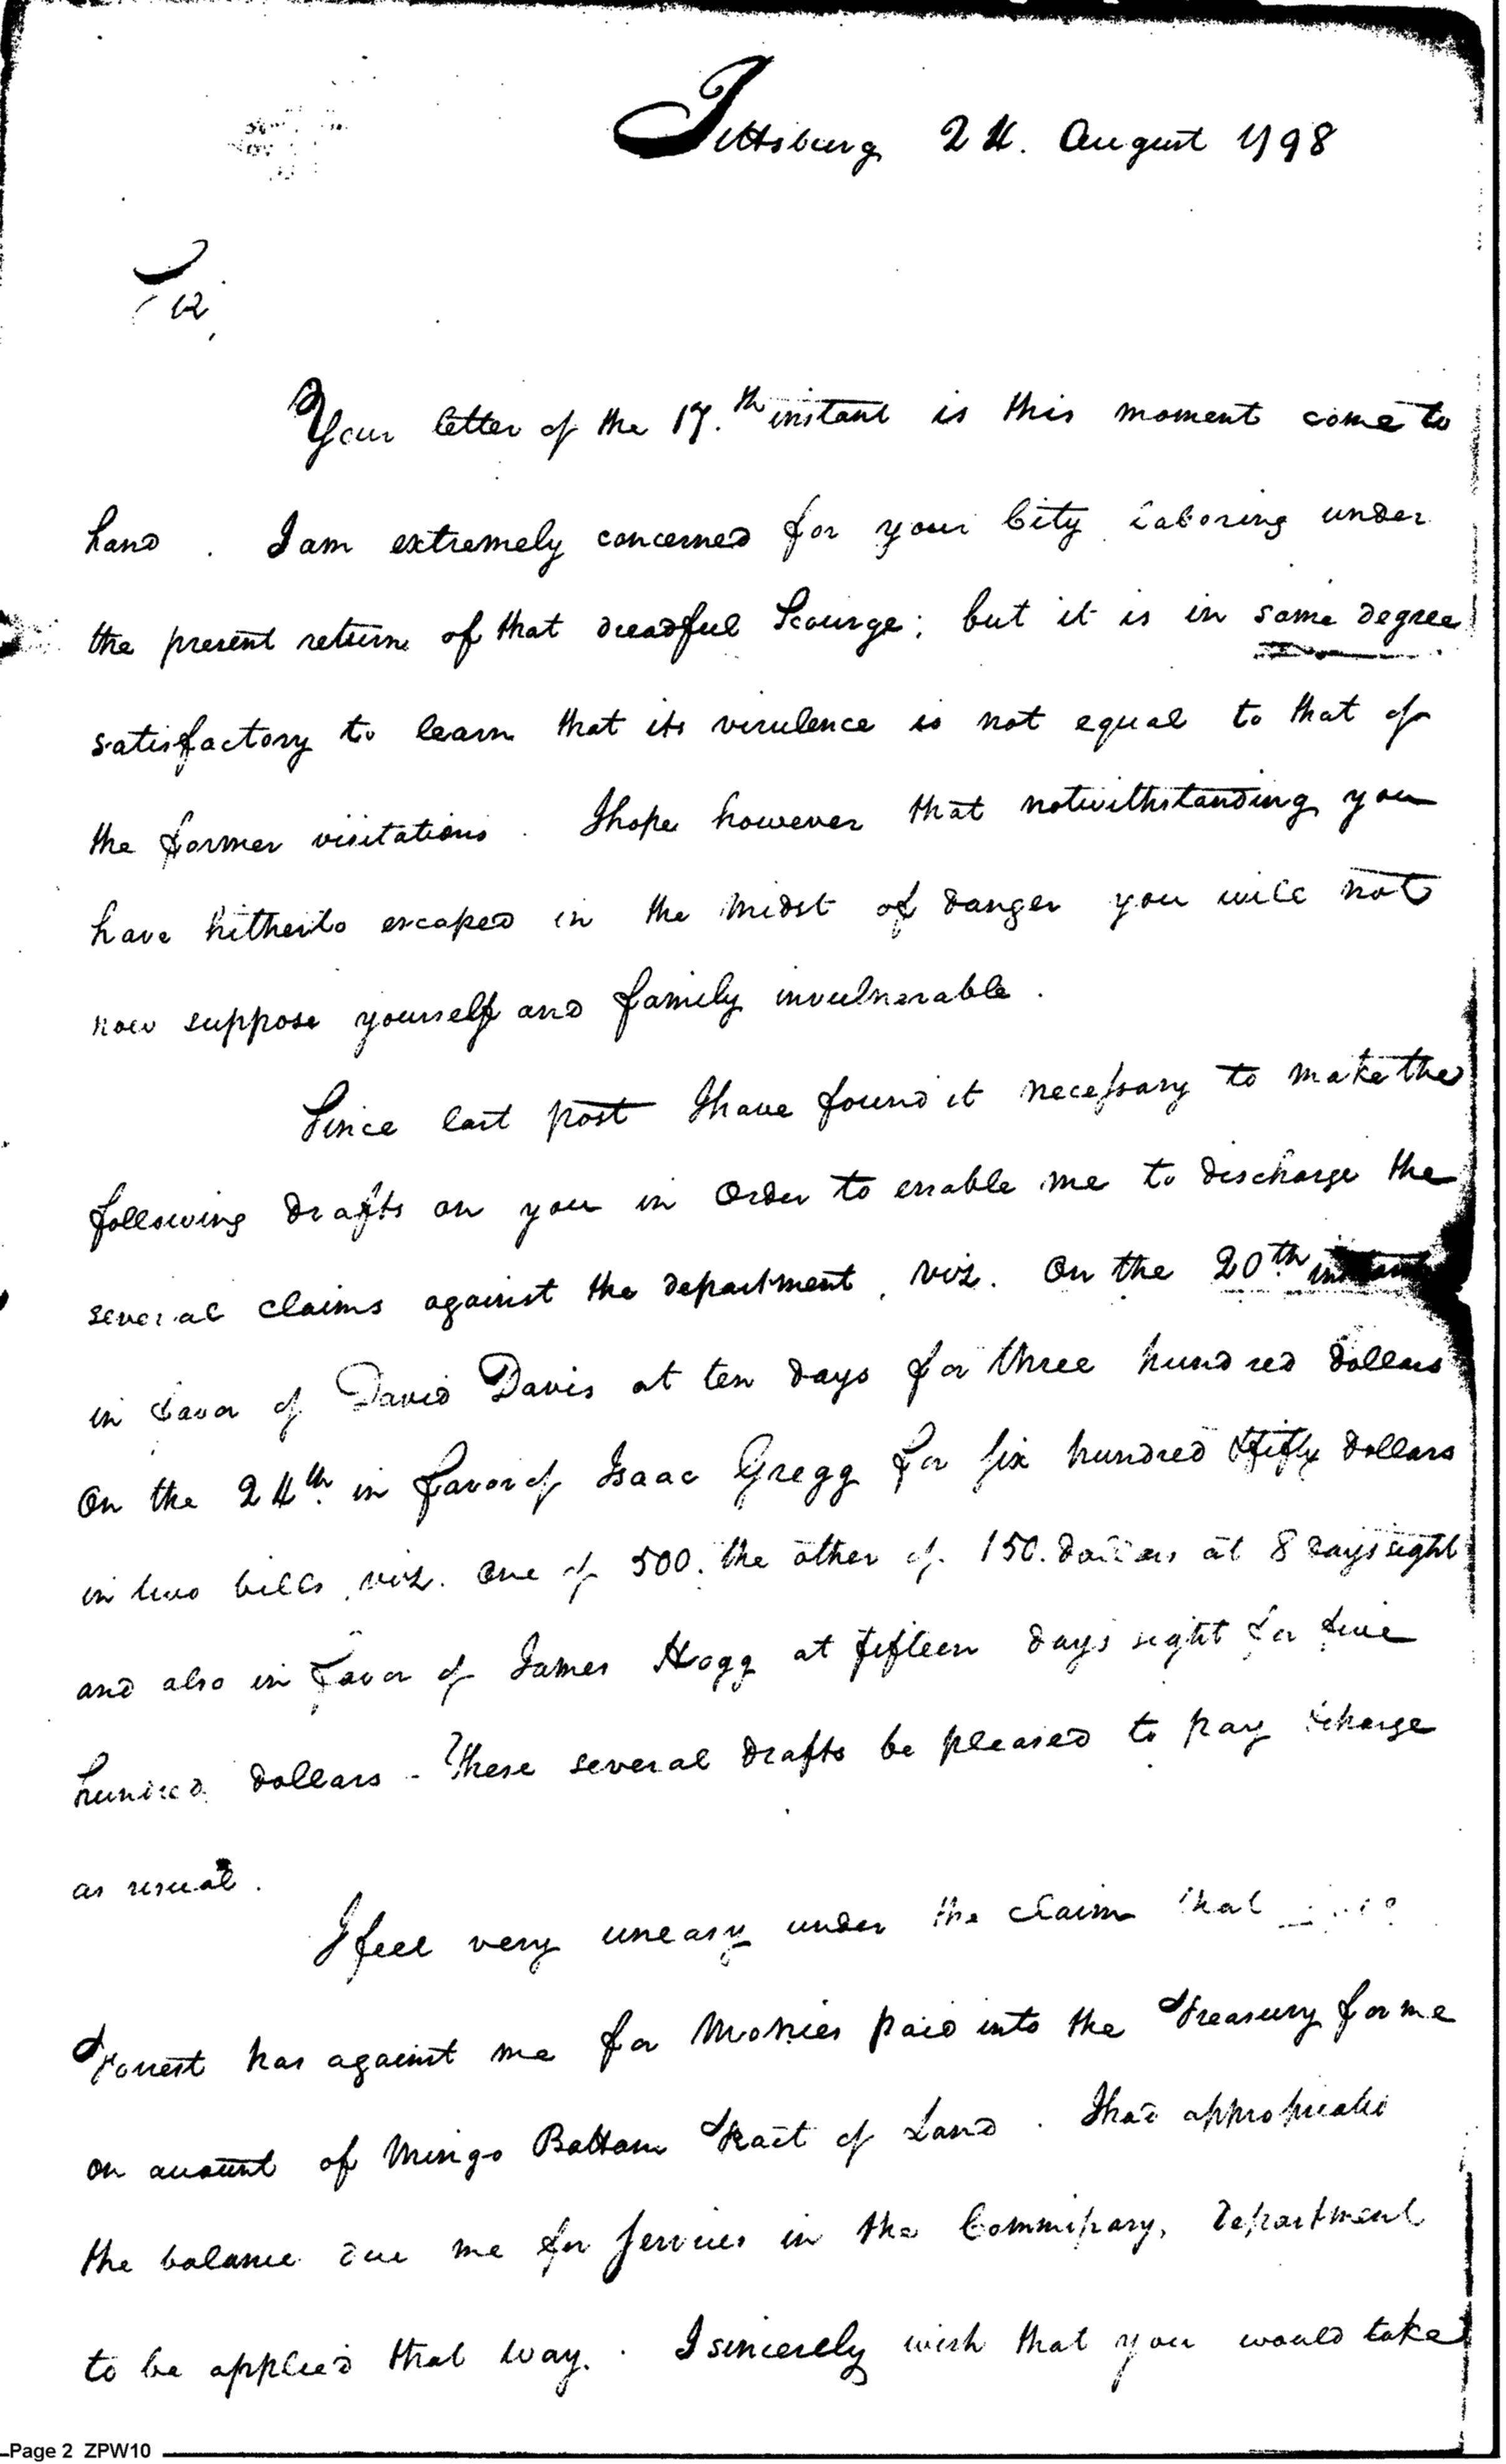 Pittsburg 24. August 1798
Sir
Your letter of the 17.th instant is this moment come to
hand . I am extremely concerned for your City laboring under
the present return of that dreadful Scourge; but it is in some degree
satisfactory to learn that its virulence is not equal to that of
the former visitations . I hope however that notwithstanding you
have hitherto escaped in the midst of danger you will not
now suppose yourself and family invulnerable .
Since last post I have found it necessary to make the
following drafts on you in Order to enable me to discharge the
several claims against the department , viz. On the 20th instant
in favor of David Davis at ten days for three hundred dollars
On the 24th. in favor of Isaac Gregg for six hundred & fifty dollars
in two bills , viz. One of 500. the other of 150. dollars at 8 days sight
and also in favor of James Hogg at fifteen days sight for five
hundred dollars - These several drafts be pleased to pay & charge
as usual .
I feel very uneasy under the claim that
Forrest has against me for Monies paid into the Treasury for me
on account of Mingo Bottom Tract of Land . I had appropriated
the balance due me for services in the Commissary, Department
to be applied that way. . I sincerely wish that you would take
Page 2 ZPW10